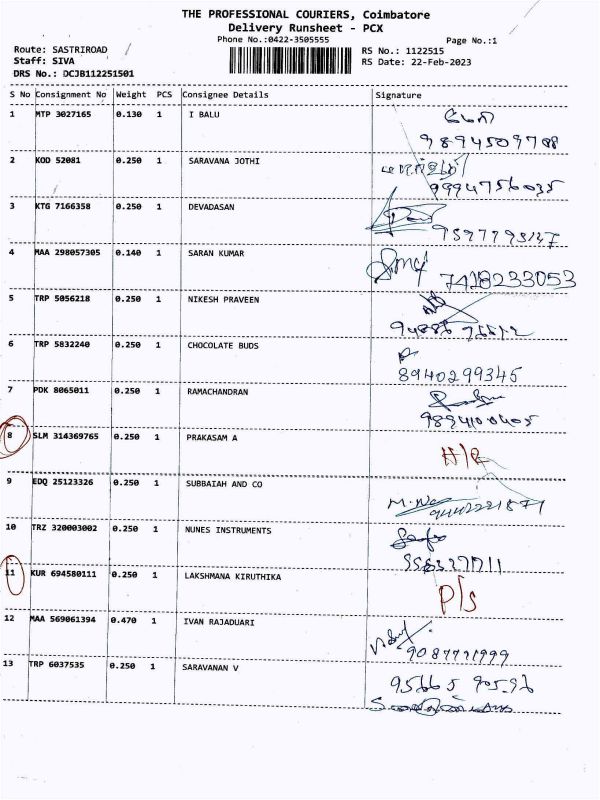 THE PROFESSIONAL COURIERS, Coimbatore
Delivery Runsheet - PCX
Phone No.:0422-3505555
Page No.:1
Route: SASTRIROAD
Staff: SIVA
DRS No.: DCJB112251501
RS No.: 1122515
RS Date: 22-Feb-2023
S No Consignment No Weight PCS Consignee Details Signature
1 MTP 3027165 0.130 1 I BALU
9894509788
2 KOD 52081 0.250 1 SARAVANA JOTHI
9994756035
3 KTG 7166358 0.250 1 DEVADASAN
4 MAA 298057305 0.140 1 SARAN KUMAR
7418233053
5 TRP 5056218 0.250 1 NIKESH PRAVEEN
6 TRP 5832240 0.250 1 CHOCOLATE BUDS
8940299345
7 PDK 8065011 0.250 1 RAMACHANDRAN
9894100405
8 SLM 314369765 0.250 1 PRAKASAM A
9 EDQ 25123326 0.250 1 SUBBAIAH AND CO
10 TRZ 320003002 0.250 1 NUNES INSTRUMENTS
11 KUR 694580111 0.250 1 LAKSHMANA KIRUTHIKA P/s
12 MAA 569061394 0.470 1 IVAN RAJADUARI
9087771999
13 TRP 6037535 0.250 1 SARAVANAN V
95665 90596